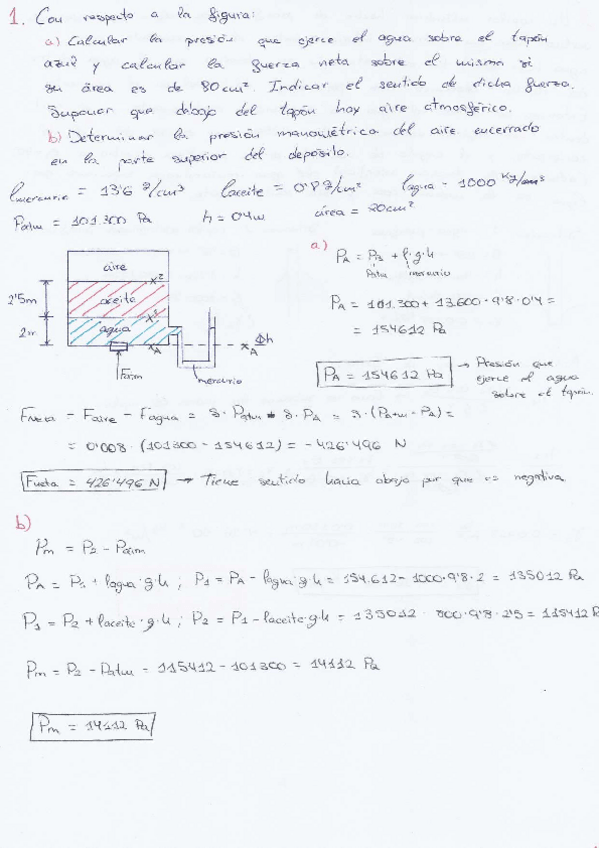 1. Con respecto a la figura:
a) Calcular la presión que ejerce el agua sobre el tapón
azul y calcular la fuerza neta sobre el mismo si
su área es de 80cm². Indicar el sentido de dicha fuerza.
Suponer que debajo del tapón hay aire atmosférico.
b) Determinar la presión manométrica del aire encerrado
en la parte superior del depósito.
ρmercurio = 13'6 g/cm³ ρaceite = 0'8 g/cm³ ρagua = 1000 Kg/m³
Patm = 101.300 Pa h = 0'4m área = 20cm²
a) PA = PB + ρ·g·h
Patm mercurio
PA = 101.300 + 13.600·9'8·0'4 =
= 154612 Pa
PA = 154612 Pa → Presión que
ejerce el agua
sobre el tapón.
aire x2
2'5m aceite x1
2m agua
xA xA Δh
Fatm mercurio
Fneta = Faire - Fagua = S·Patm - S·PA = S·(Patm - PA) =
= 0'008·(101300 - 154612) = -426'496 N
Fneta = 426'496 N → Tiene sentido hacia abajo por que es negativa
b)
Pm = P2 - Patm
PA = P1 + ρagua·g·h ; P1 = PA - ρagua·g·h = 154.612 - 1000·9'8·2 = 135012 Pa
P1 = P2 + ρaceite·g·h ; P2 = P1 - ρaceite·g·h = 135012 - 800·9'8·2'5 = 115412 Pa
Pm = P2 - Patm = 115412 - 101300 = 14112 Pa
Pm = 14112 Pa